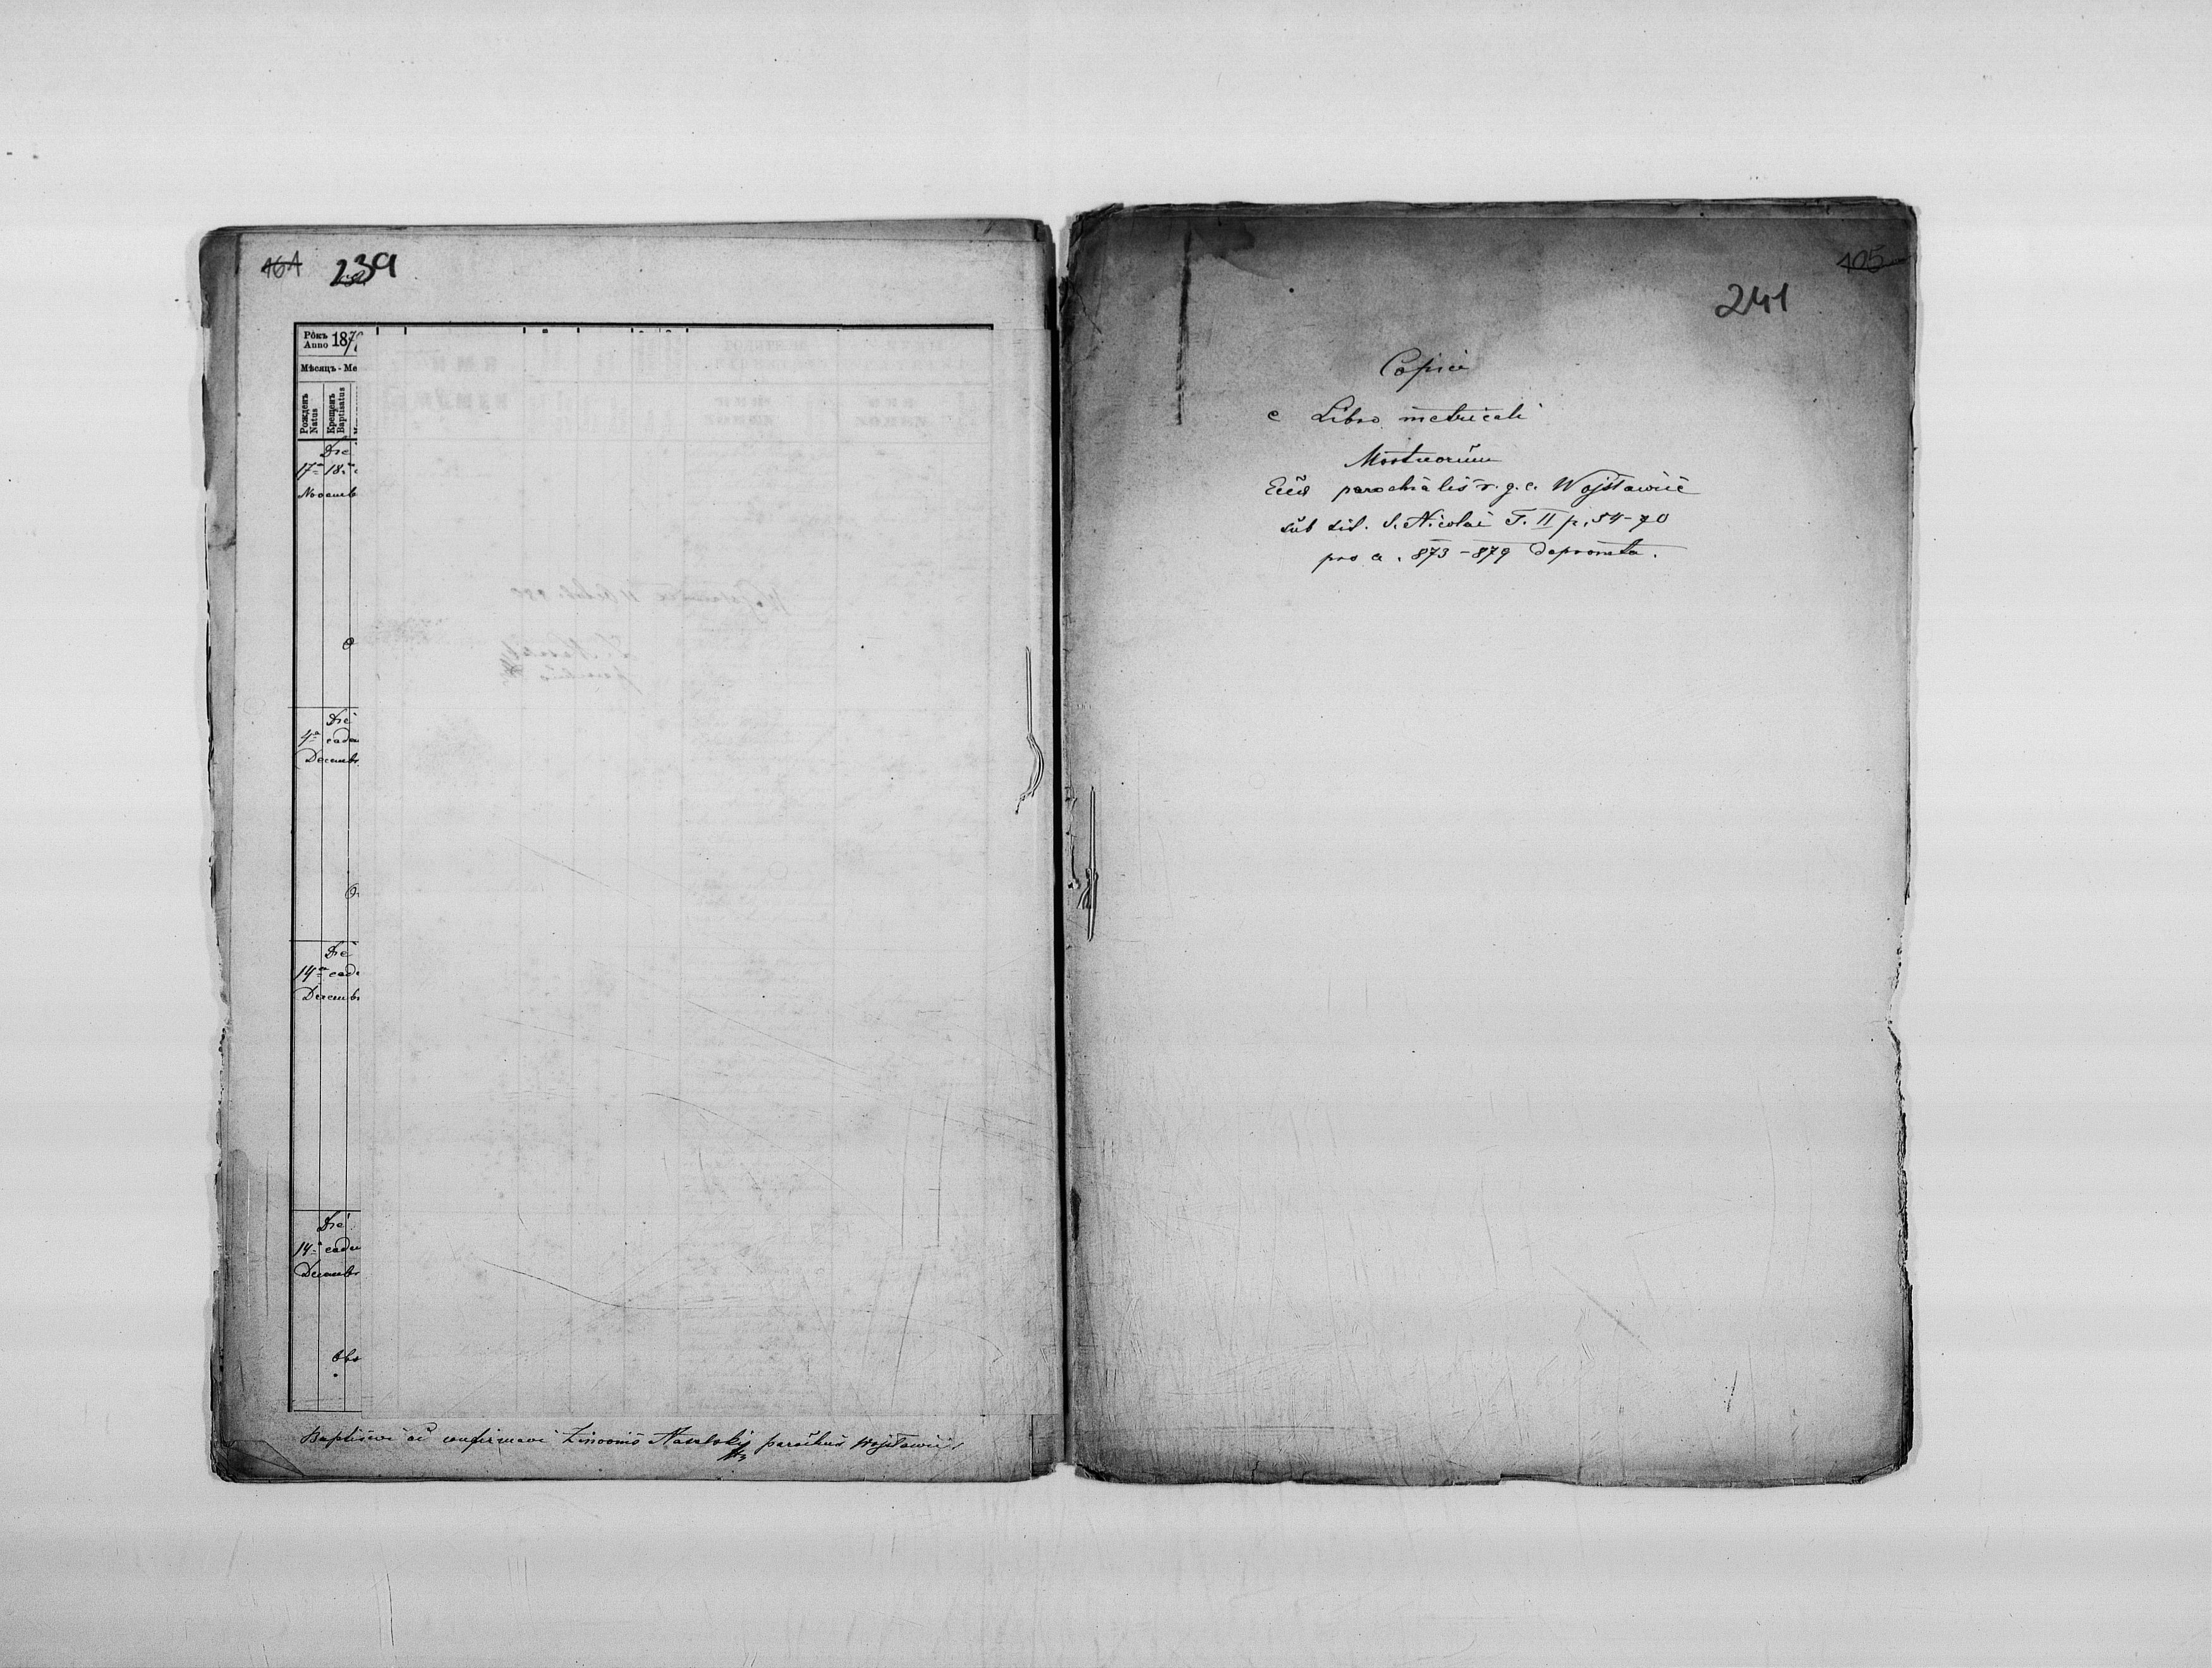 461 239
Рôкъ
Anno 187
Мѣсяцъ - Me
Рожденъ
Natus
Крещенъ
Baptisatus
Die
17ª 18ª
Novemb
Die
4ª eade
Decemb
Die
14ª eade
Decemb
Die
14ª eade
Decemb
Obs
Baptisavi ac confirmavi parochus Wojsławic
405
241
Copia
e Libro metricali
Mortuorum
Eccl̄ae parochialis r. g. c. Wojsławice
sub tit. S. Nicolai T. II p. 54-70
pro a. 873-879 depromta.